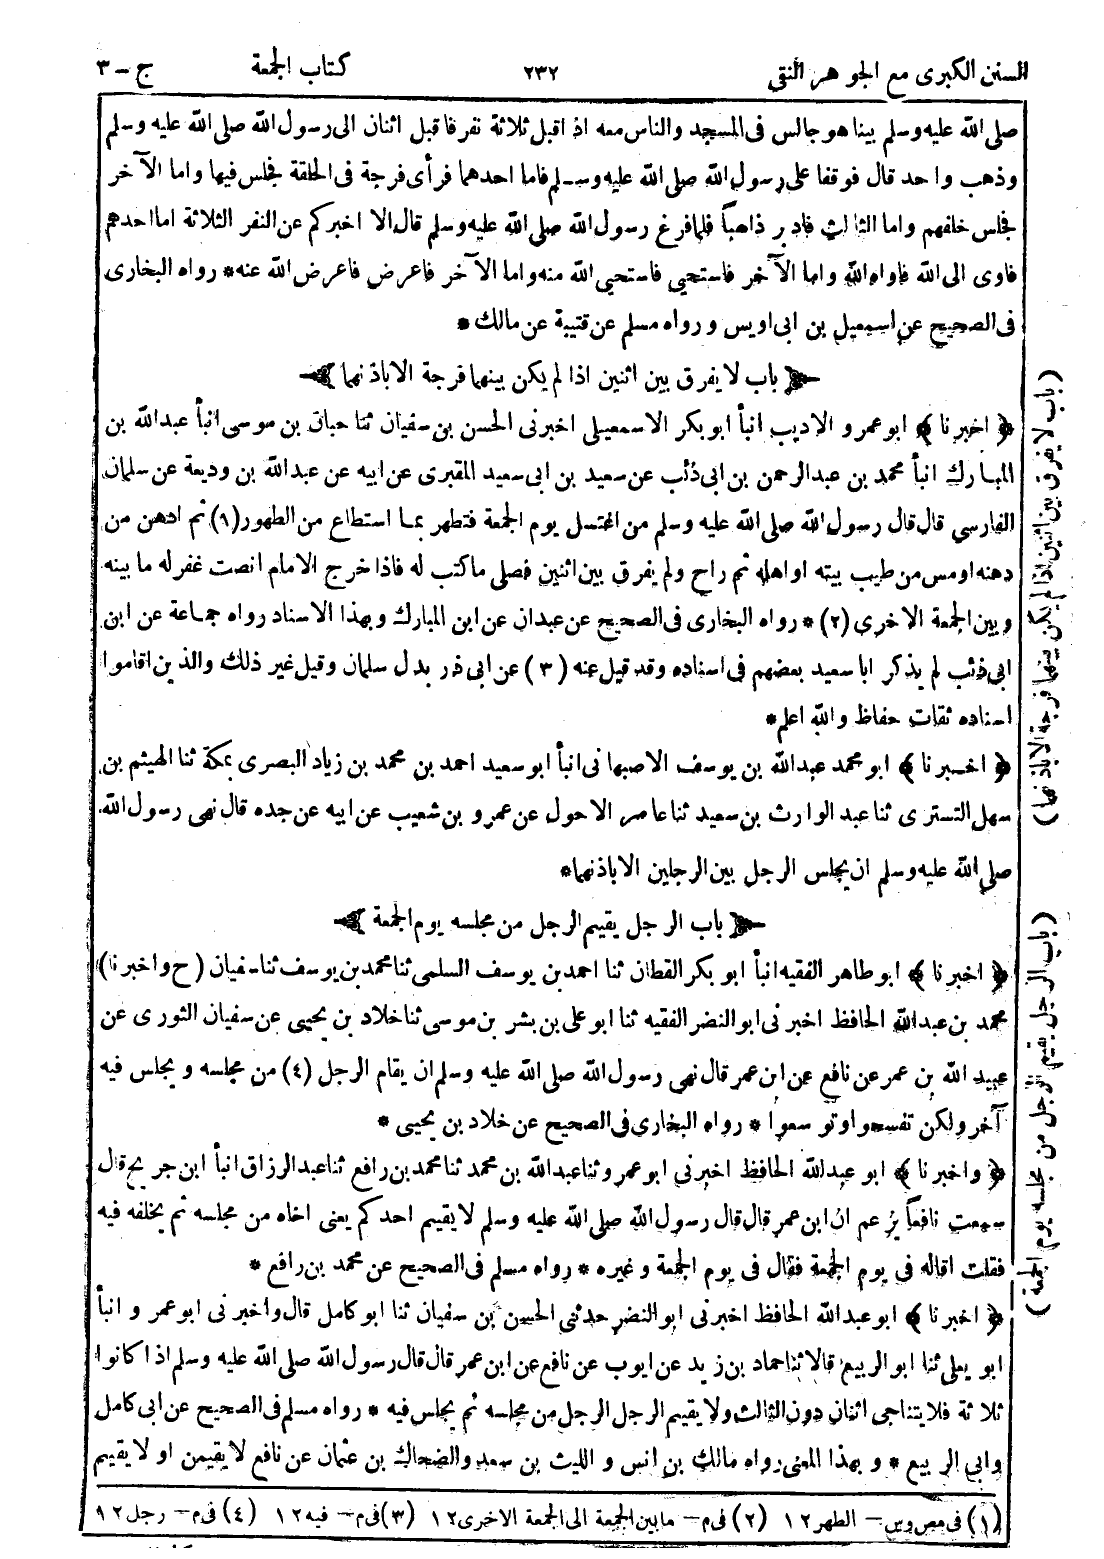 السنن الكبرى مع الجوهر النقي ٢٣٢ كتاب الجمعة ج – ٣
صلى الله عليه وسلم بينا هو جالس فى المسجد والناس معه اذ اقبل ثلاثة نفر فاقبل اثنان الى رسول الله صلى الله عليه وسلم
وذهب واحد قال فوقفا على رسول الله صلى الله عليه وسلم فاما احدهما فرأى فرجة فى الحلقة فجلس فيها واما الآخر
فجلس خلفهم واما الثالث فادبر ذاهباً فلما فرغ رسول الله صلى الله عليه وسلم قال الا اخبركم عن النفر الثلاثة اما احدهم
فاوى الى الله فاواه الله واما الآخر فاستحيى فاستحيى الله منه واما الآخر فاعرض فاعرض الله عنه * رواه البخارى
فى الصحيح عن اسمعيل بن ابى اويس ورواه مسلم عن قتيبة عن مالك *
باب لا يفرق بين اثنين اذا لم يكن بينهما فرجة الا باذنهما
﴿ اخبرنا ﴾ ابو عمرو الاديب انبأ ابو بكر الاسمعيلى اخبرنى الحسن بن سفيان ثنا حبان بن موسى انبأ عبد الله بن
المبارك انبأ محمد بن عبد الرحمن بن ابى ذئب عن سعيد بن ابى سعيد المقبرى عن ابيه عن عبد الله بن وديعة عن سلمان
الفارسى قال قال رسول الله صلى الله عليه وسلم من اغتسل يوم الجمعة فتطهر بما استطاع من الطهور (١) ثم ادهن من
دهنه او مس من طيب بيته او اهله ثم راح ولم يفرق بين اثنين فصلى ما كتب له فاذا خرج الامام انصت غفر له ما بينه
وبين الجمعة الاخرى (٢) * رواه البخارى فى الصحيح عن عبدان عن ابن المبارك وبهذا الاسناد رواه جماعة عن ابن
ابى ذئب لم يذكر ابا سعيد بعضهم فى اسناده وقد قيل عنه (٣) عن ابى ذر بدل سلمان وقيل غير ذلك والذين اقاموا
اسناده ثقات حفاظ والله اعلم *
﴿ اخبرنا ﴾ ابو محمد عبد الله بن يوسف الاصبهانى انبأ ابو سعيد احمد بن محمد بن زياد البصرى بمكة ثنا الهيثم بن
سهل التسترى ثنا عبد الوارث بن سعيد ثنا عامر الاحول عن عمرو بن شعيب عن ابيه عن جده قال نهى رسول الله
صلى الله عليه وسلم ان يجلس الرجل بين الرجلين الا باذنهما *
باب الرجل يقيم الرجل من مجلسه يوم الجمعة
﴿ اخبرنا ﴾ ابو طاهر الفقيه انبأ ابو بكر القطان ثنا احمد بن يوسف السلمى ثنا محمد بن يوسف ثنا سفيان (ح واخبرنا)
محمد بن عبد الله الحافظ اخبرنى ابو النضر الفقيه ثنا ابو على بن بشر بن موسى ثنا خلاد بن يحيى عن سفيان الثورى عن
عبيد الله بن عمر عن نافع عن ابن عمر قال نهى رسول الله صلى الله عليه وسلم ان يقام الرجل (٤) من مجلسه ويجلس فيه
آخر ولكن تفسحوا وتوسعوا * رواه البخارى فى الصحيح عن خلاد بن يحيى *
﴿ واخبرنا ﴾ ابو عبد الله الحافظ اخبرنى ابو عمرو ثنا عبد الله بن محمد ثنا محمد بن رافع ثنا عبد الرزاق انبأ ابن جريج قال
سمعت نافعاً يزعم ان ابن عمر قال قال رسول الله صلى الله عليه وسلم لا يقيم احدكم يعنى اخاه من مجلسه ثم يخلفه فيه
فقلت اقاله فى يوم الجمعة فقال فى يوم الجمعة وغيره * رواه مسلم فى الصحيح عن محمد بن رافع *
﴿ اخبرنا ﴾ ابو عبد الله الحافظ اخبرنى ابو النضر حدثنى الحسين بن سفيان ثنا ابو كامل قال واخبرنى ابو عمرو انبأ
ابو يعلى ثنا ابو الربيع قالا ثنا حماد بن زيد عن ايوب عن نافع عن ابن عمر قال قال رسول الله صلى الله عليه وسلم اذا كانوا
ثلاثة فلا يتناجى اثنان دون الثالث ولا يقيم الرجل الرجل من مجلسه ثم يجلس فيه * رواه مسلم فى الصحيح عن ابى كامل
وابى الربيع * وبهذا المعنى رواه مالك بن انس والليث بن سعد والضحاك بن عثمان عن نافع لا يقيمن او لا يقيم
(١) فى مص وس – الطهر ١٢ (٢) فى م – ما بين الجمعة الى الجمعة الاخرى ١٢ (٣) فى م – فيه ١٢ (٤) فى م – رجل ١٢
(باب لا يفرق بين اثنين اذا لم يكن بينهما فرجة الا باذنهما)
(باب الرجل يقيم الرجل من مجلسه يوم الجمعة)